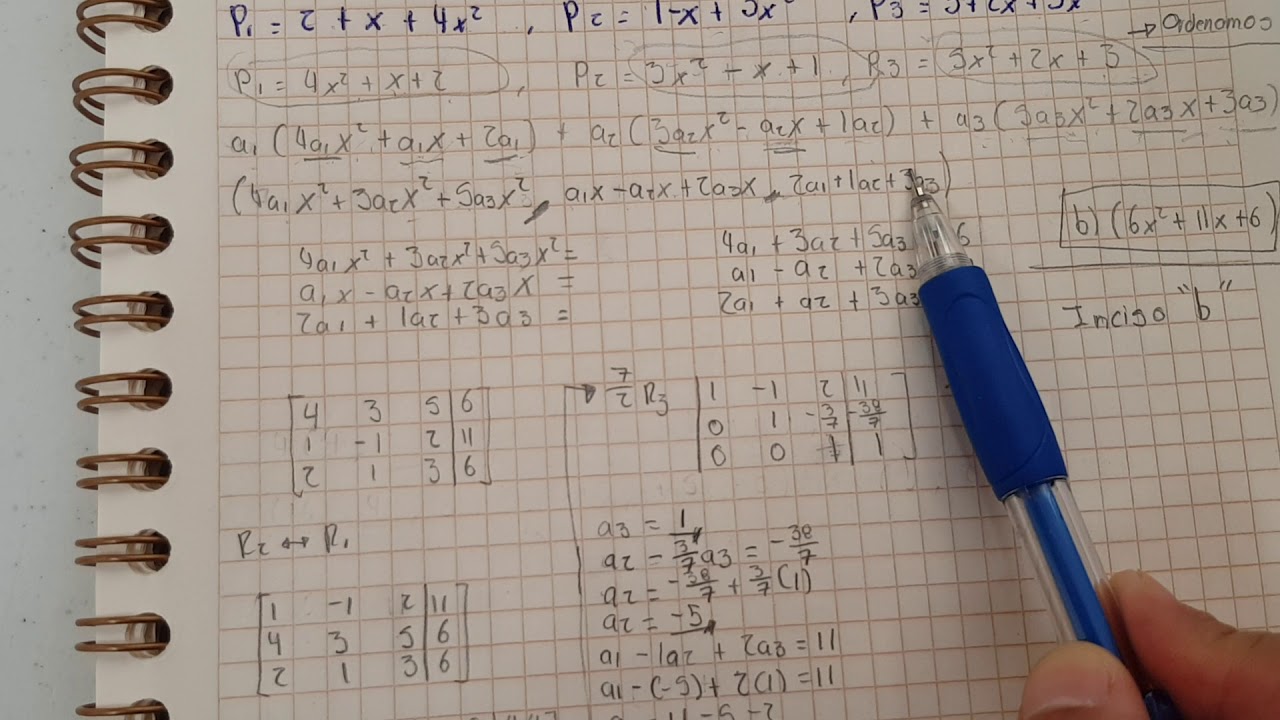 P1 = 2 + x + 4x² , P2 = 1-x + 3x² , P3 = 3+2x+5x
→ Ordenamos
P1 = 4x² + x + 2 , P2 = 3x² - x + 1 , P3 = 5x² + 2x + 3
a1 (4a1x² + a1x + 2a1) + a2 (3a2x² - a2x + 1a2) + a3 (5a3x² + 2a3x + 3a3)
(4a1x² + 3a2x² + 5a3x² , a1x - a2x + 2a3x , 2a1 + 1a2 + 3a3)
b) (6x² + 11x + 6)
4a1x² + 3a2x² + 5a3x² = 4a1 + 3a2 + 5a3 6
a1x - a2x + 2a3x = a1 - a2 + 2a3
2a1 + 1a2 + 3a3 = 2a1 + a2 + 3a3
Inciso "b"
4 3 5 | 6
1 -1 2 | 11
2 1 3 | 6
R2 ↔ R1
1 -1 2 | 11
4 3 5 | 6
2 1 3 | 6
→ 7/2 R3
1 -1 2 | 11
0 1 -3/7 | -38/7
0 0 1 | 1
a3 = 1
a2 - 3/7 a3 = -38/7
a2 = -38/7 + 3/7 (1)
a2 = -5
a1 - 1a2 + 2a3 = 11
a1 - (-5) + 2(1) = 11
= 11 - 5 - 2